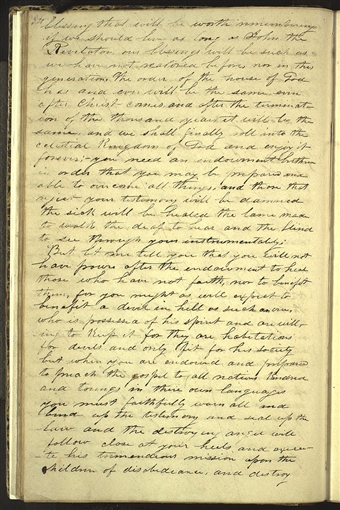 34 blessing that will be worth remembering
if we should live as long as John the
Revelator, our blessings will be such as
we have not realized before, nor in this
generation. The order of the house of God
has and ever will be the same, even
after Christ comes, and after the terminati
on of the thousand years it will be the
same, and we shall finally roll into the
celestial Kingdom of God and enjoy it
forever;- you need an endowment brethren
in order that you may be prepared and
able to overcome all things, and those that
reject your testimony will be damned
the sick will be healed the lame made
to walk the deaf to hear and the blind
to see through your instrumentality;
But let me tell you that you will not
have power after the endowment to heal
those who have not faith, nor to benefit
them, for you might as well expect to
benefit a devil in hell as such an one,
who is possessed of his spirit and are will
ing to keep it for they are habitations
for devils and only fit for his society
but when you are endowed and prepared
to preach the gospel to all nations kindred
and toungs in there own languages
you must faithfully warn all and
bind up the testimony and seal up the
law and the destroying angel will
follow close at your heels and execu-
te his tremendous mission upon the
children of disobediance, and destroy